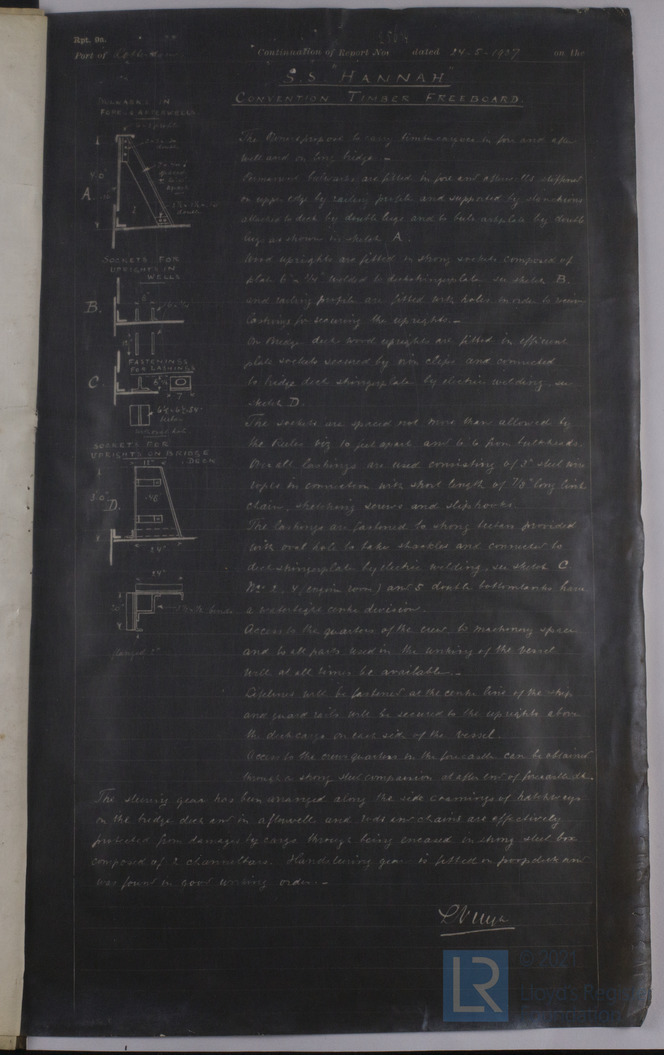 Rpt. 9a.
Port of Rotterdam Continuation of Report No. dated 24-5-1937 on the
S.S. "HANNAH"
CONVENTION TIMBER FREEBOARD.
BULWARKS IN
FORE & AFTERWELLS.
A.
SOCKETS FOR
UPRIGHTS IN
WELLS
B.
FASTENINGS
FOR LASHINGS
C.
7"
SOCKETS FOR
UPRIGHTS ON BRIDGE
DECK
D.
24"
24"
flanged 3"
The Owners propose to carry timber cargoes in fore and after
well and on long bridge. -
Permanent bulwarks are fitted in fore and afterwells stiffened
on upper edge by railing profile and supported by stanchions
attached to deck by double lugs and to bulwarkplate by double
lugs as shown in sketch A.
Wood uprights are fitted in strong sockets composed of
plate welded to deckstringerplate see sketch B.
and railing profile are fitted with holes in order to receive
lashings for securing the uprights. -
On Bridge deck wood uprights are fitted in efficient
plate sockets secured by iron clips and connected
to bridge deck stringerplate by electric welding, see
sketch D.
The sockets are spaced not more than allowed by
the Rules viz 10 feet apart and 6'6 from bulkheads.
Overall lashings are used consisting of 3" steel wire
ropes in connection with short length of 7/8" long link
chain, stretching screws and sliphooks.
The lashings are fastened to strong plates provided
with oval hole to take shackles and connected to
deckstringerplate by electric welding, see sketch C
Nos 2, 4 (engine room) and 5 double bottomtanks have
a watertight centre division.
Access to the quarters of the crew, to machinery space
and to all parts used in the working of the vessel
will at all times be available. -
Lifelines will be fastened at the centre line of the ship
and guard rails will be secured to the uprights above
the deckcargo on each side of the vessel.
Access to the crewquarters in the forecastle can be obtained
through a strong steel companion at after end of forecastle dk.
The steering gear has been arranged along the side coamings of hatchways
on the bridge deck and in afterwell and rods and chains are effectively
protected from damage by cargo through being encased in strong steel box
composed of 2 channelbars. Handsteering gear is fitted on poopdeck and
was found in good working order. -
LR
© 2021
Lloyd's Register
Foundation